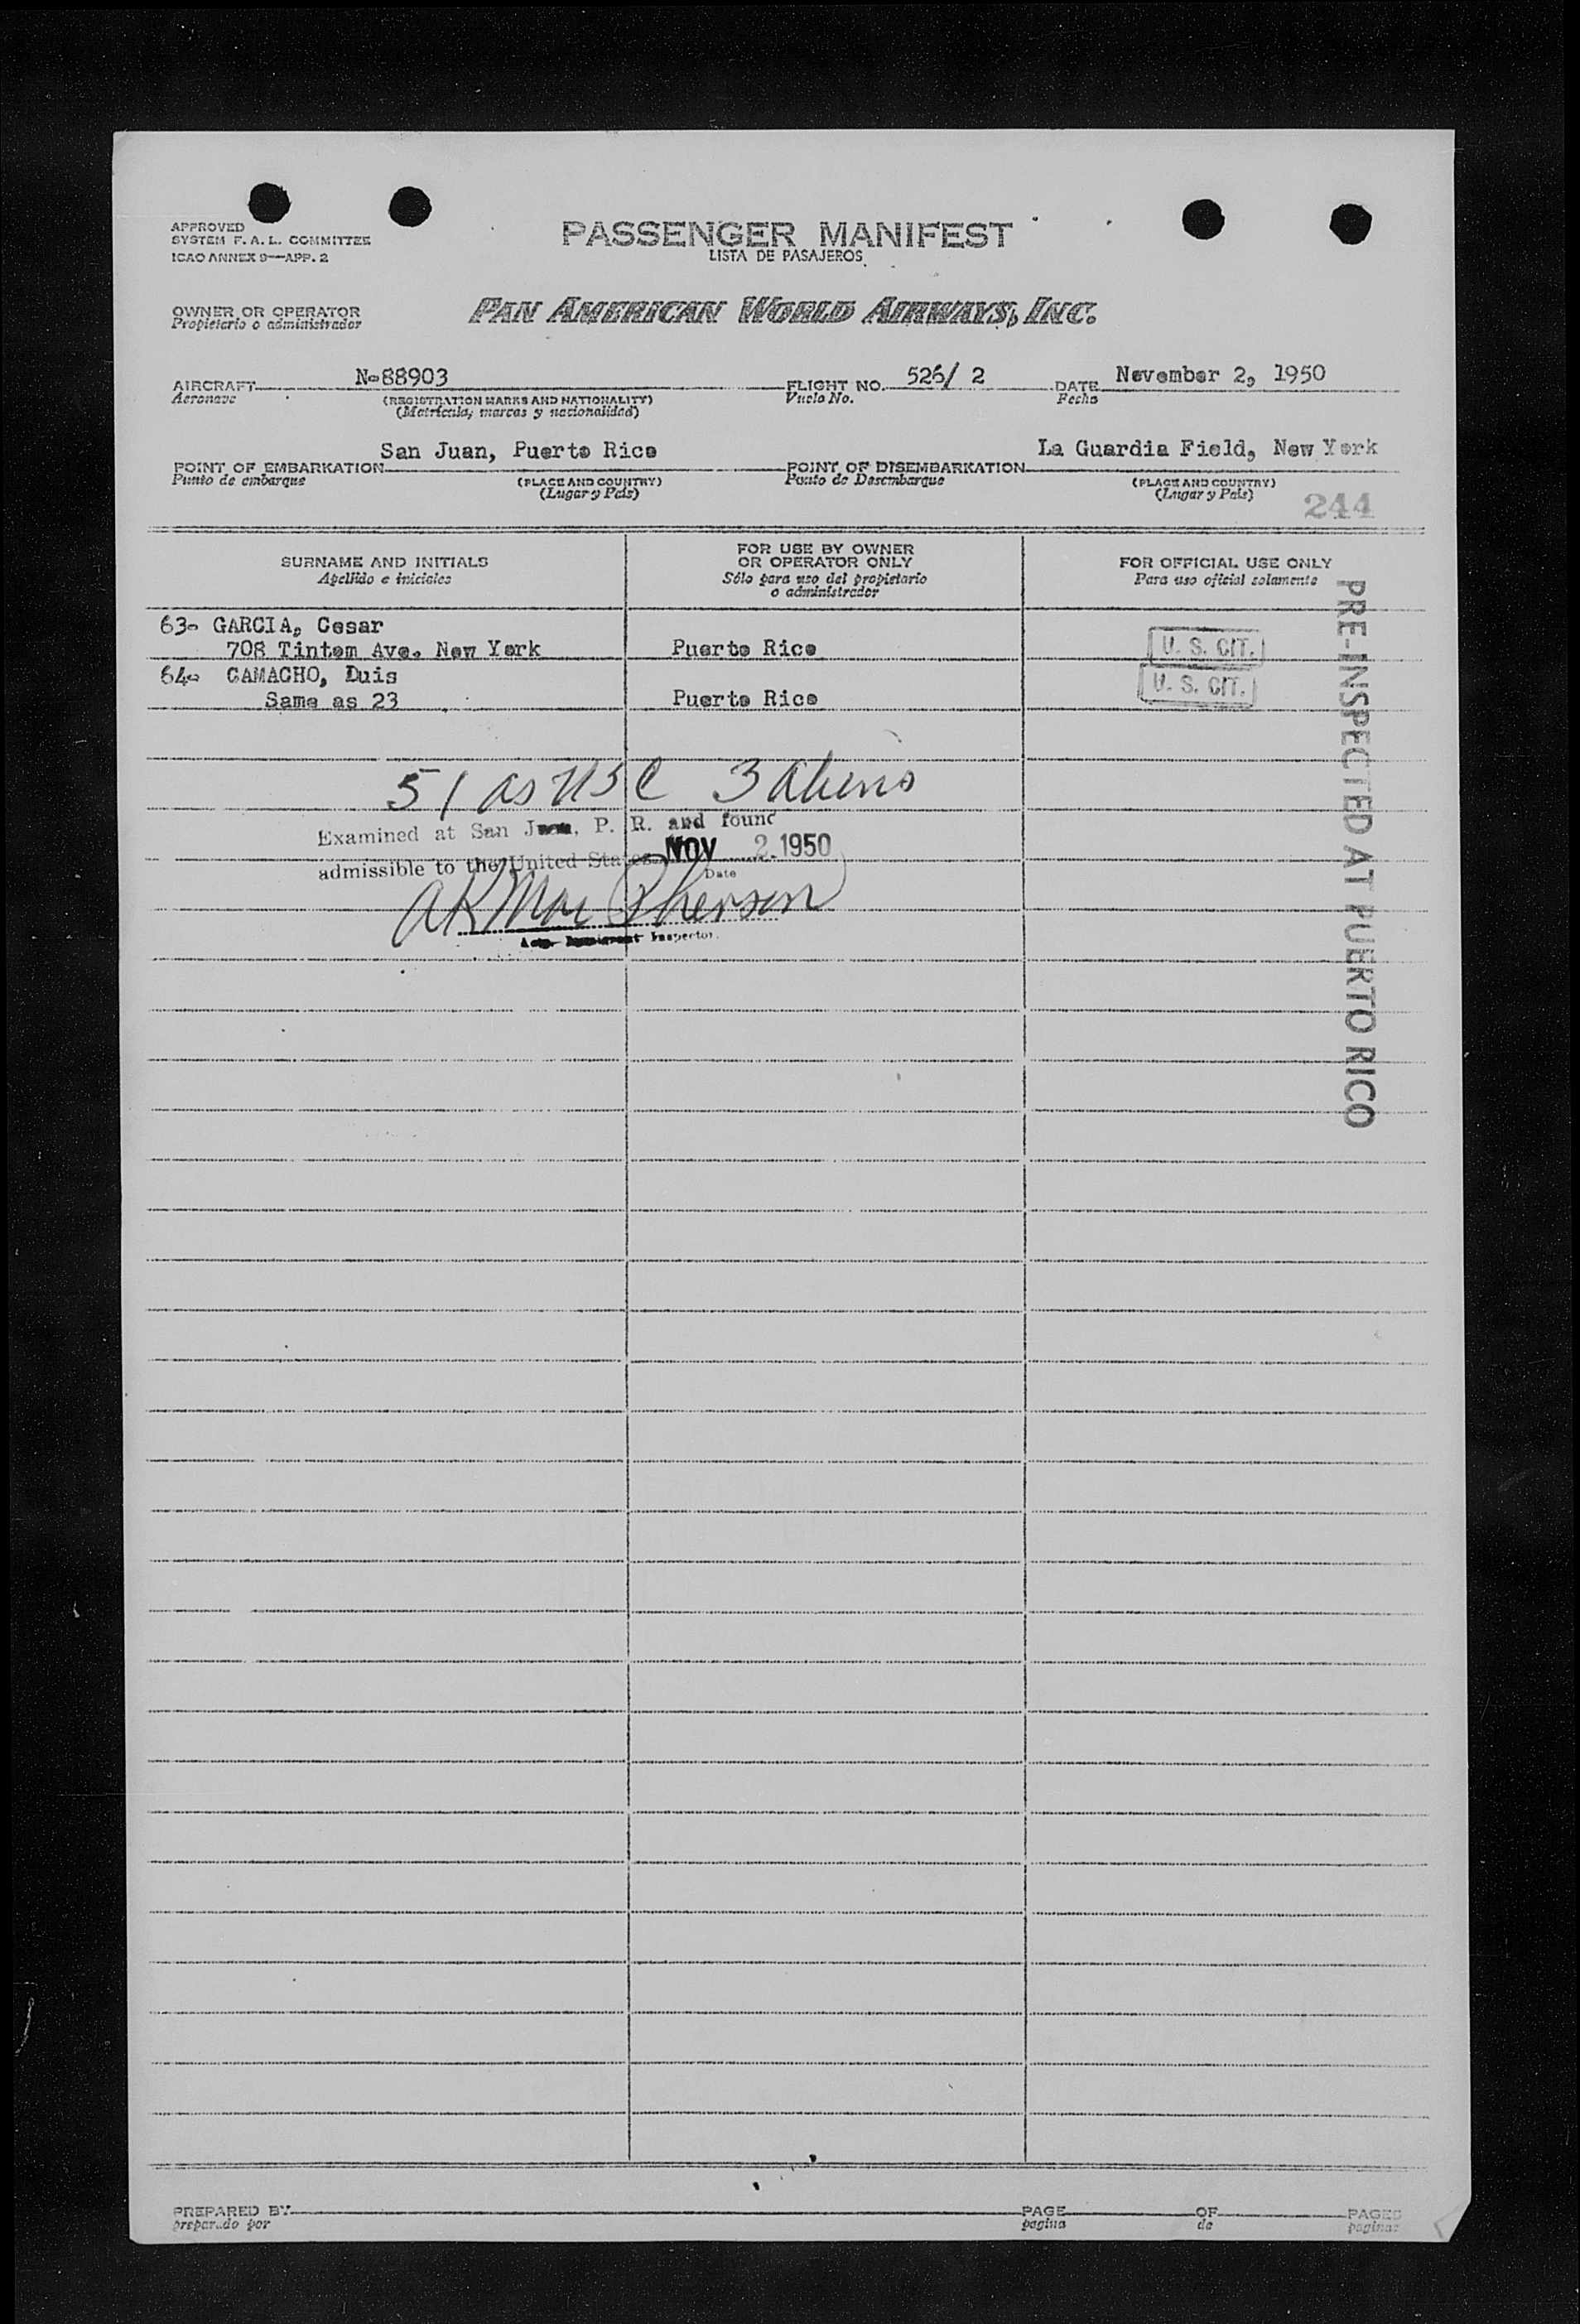 APPROVED
SYSTEM F. A. L. COMMITTEE
ICAO ANNEX 9—APP. 2
PASSENGER MANIFEST
LISTA DE PASAJEROS
OWNER OR OPERATOR
Propietario o administrador
PAN AMERICAN WORLD AIRWAYS, INC.
AIRCRAFT N-88903 FLIGHT NO. 526/ 2 DATE November 2, 1950
Aeronave (REGISTRATION MARKS AND NATIONALITY) Vuelo No. Fecha
(Matrícula, marcas y nacionalidad)
POINT OF EMBARKATION San Juan, Puerto Rico POINT OF DISEMBARKATION La Guardia Field, New York
Punto de embarque (PLACE AND COUNTRY) Punto de Desembarque (PLACE AND COUNTRY)
(Lugar y País) (Lugar y País)
244
SURNAME AND INITIALS FOR USE BY OWNER OR OPERATOR ONLY FOR OFFICIAL USE ONLY
Apellido e iniciales Sólo para uso del propietario o administrador Para uso oficial solamente
63- GARCIA, Cesar
708 Tintom Ave. New York Puerto Rico U. S. CIT.
64- CAMACHO, Luis
Same as 23 Puerto Rico U. S. CIT.
PRE-INSPECTED AT PUERTO RICO
51 as USC 3 aliens
Examined at San Juan, P. R. and found
admissible to the United States NOV 2 1950
Date
AR MacPherson
Actg. Immigrant Inspector.
PREPARED BY PAGE OF PAGES
preparado por pagina de paginas